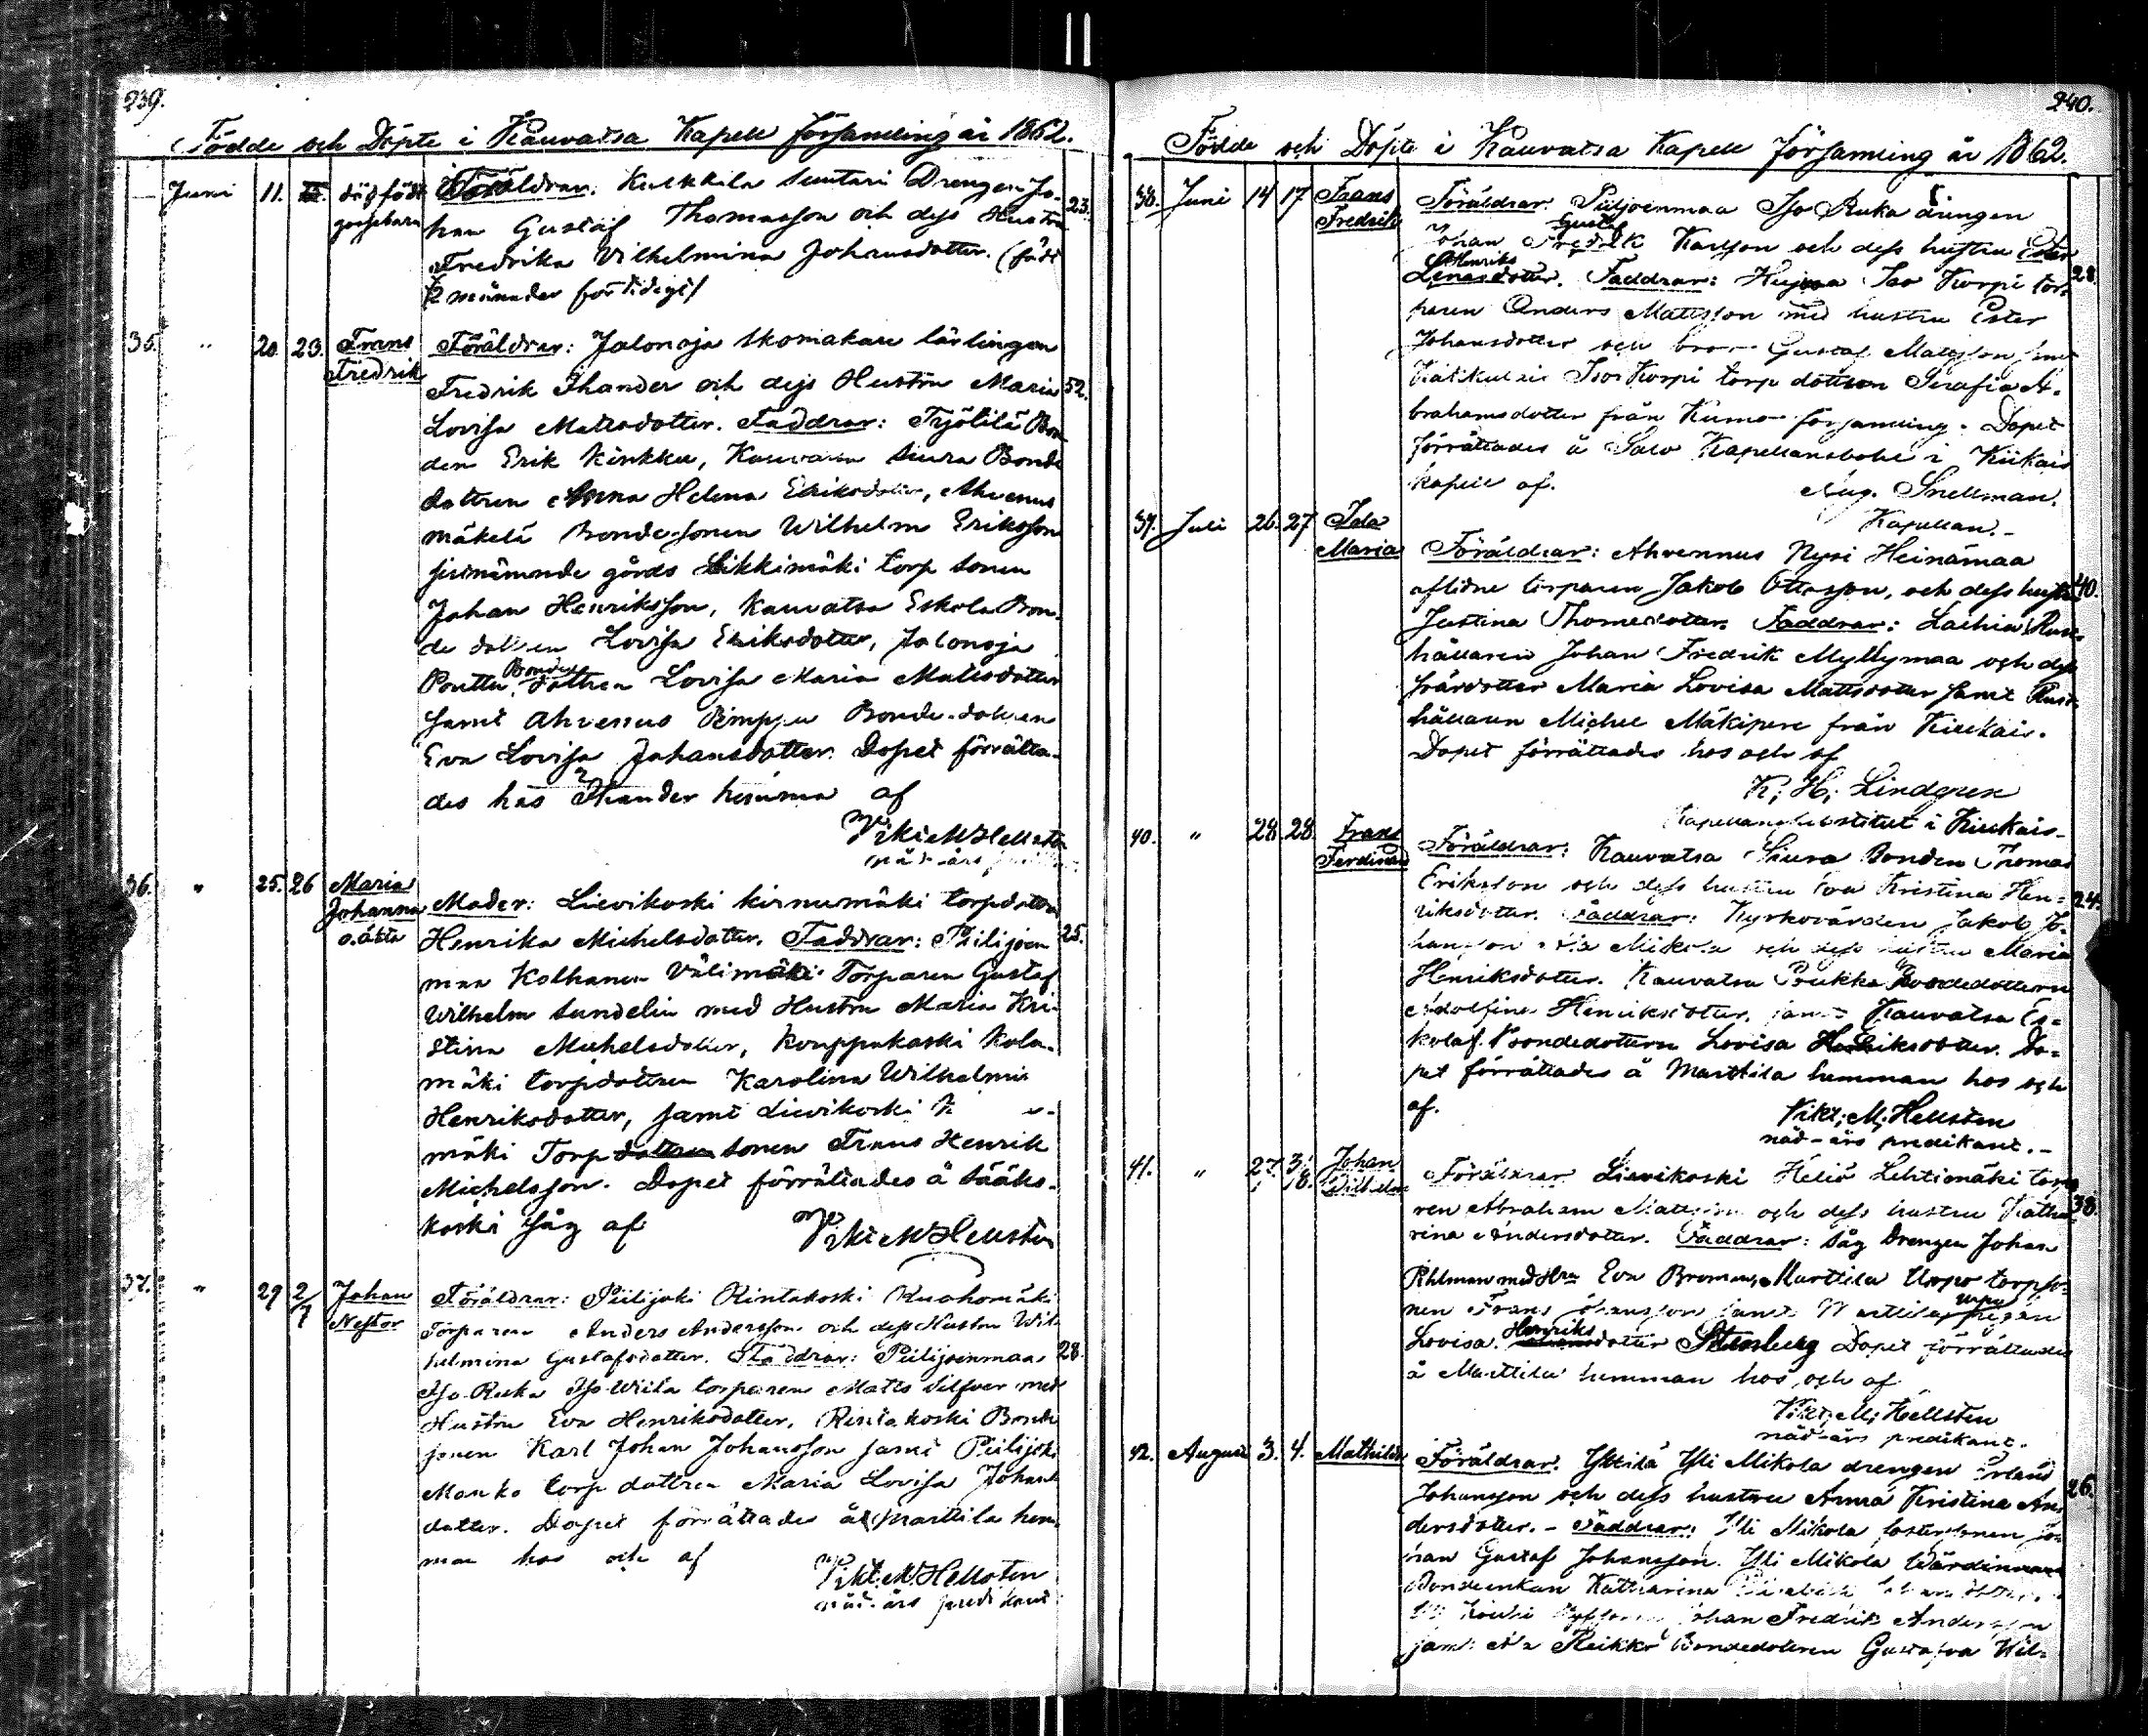 239.
Födde och Döpte i Kauvatsa Kapell församling år 1862.
Juni 11. dödfödt Föräldrar: Kulkkila Suutari Drengen Jo-
gossebarn han Gustaf Thomasson och dess Hustru 23.
Fredrika Vilhelmina Johansdotter. (född
2 månader förtidigt)
35. " 20. 23. Frans Föräldrar: Jalonoja Skomakare lärlingen
Fredrik Fredrik Thander och dess Hustru Maria 52.
Lovisa Matsdotter. Faddrar: Työtilä Bon
den Erik Kinkku, Kauvatsa Siura Bonde
dottren Anna Helena Eriksdotter, Ahvenus
mäkelä Bonde sonen Wilhelm Eriksson
sistnämnde gårds Likkimäki torp sonen
Johan Henriksson, Kauvatsa Eskola Bon-
de dottren Lovisa Eriksdotter, Jalonoja
Bonde
Pouttu dottren Lovisa Maria Matsdotter
samt Ahvenus Pimppu Bonde-dottren
Eva Lovisa Johansdotter. Dopet förrätta-
des hos Thander hemma af
Vikt. M. Hellsten
nåd-års
36. " 25. 26 Maria
Johanna Moder: Lievikoski kirnumäki torpdottren
o.äkta Henrika Michelsdotter. Faddrar: Piilijoen 25.
maa Kolhanen Välimäki Torparen Gustaf
Wilhelm Sundelin med Hustru Maria Kri-
stina Michelsdotter, Kouppakoski Kola-
mäki torpdottren Karolina Wilhelmina
Henriksdotter, samt Lievikoski
mäki Torp dottren sonen Frans Henrik
Michelsson. Dopet förrättades å Sääks-
koski Såg af Vikt. M. Hellsten
37. " 29 2/7 Johan Föräldrar: Piilijoki Rintakoski Ruohomäki
Nestor Torparen Anders Andersson och dess Hustru Wil
helmina Gustafsdotter. Faddrar: Piilijoenmaa 28.
Iso-Ruka Iso-Wiila torparen Matts Silfver med
Hustru Eva Henriksdotter, Rintakoski Bonde
sonen Karl Johan Johansson samt Piilijoki
Manko torp dottren Maria Lovisa Johans
dotter. Dopet förrättades å Marttila hem-
man hos och af
Vikt. M. Hellsten
nåd-års predikant
240.
Födde och Döpte i Kauvatsa Kapell församling år 1862.
38. Juni 14 17 Frans Föräldrar: Piilijoenmaa Iso Ruka drängen
Fredrik Gustaf
Johan Fredrik Karlsson och dess hustru Ester
Henriks
Lenasdotter. Faddrar: Hujmaa Iso Korpi tor- 28.
paren Anders Mattsson med hustru Ester
Johansdotter och bror Gustaf Mattsson samt
Iso Korpi torp dottren Serafia A-
brahamsdotter från Kumo församling. Dopet
förrättades å Salo Kapellansbohl i Kiikais
kapell af. Aug. Snellman.
Kapellan.-
39. Juli 26. 27 Ida
Maria Föräldrar: Ahvennus Nysi Heinämaa
aflidne torparen Jakob Ottosson, och dess hustru 40.
Justina Thomedotter. Faddrar: Laihia Rust-
hållaren Johan Fredrik Myllymaa och dess
frändotter Maria Lovisa Mattsdotter samt Rust-
hållaren Michel Mäkipere från Kiukais.
Dopet förrättades hos och af
K. H. Lindgren
Kapellanssubstitut i Kiukais-
40. " 28 28. Frans
Ferdinand Föräldrar: Kauvatsa Siura Bonden Thomas
Eriksson och dess hustru Eva Kristina Hen- 24.
riksdotter. Faddrar: Kyrkovärden Jakob Jo-
hansson Mikola och dess hustru Maria
Henriksdotter. Kauvatsa Poukka Bondedottren
Adolfina Henriksdotter, samt Kauvatsa Es-
kola Bondedottren Lovisa Henriksdotter. Do-
pet förrättades å Marttila hemman hos och
af. Vikt. M. Hellsten
nåd-års predikant.-
41. " 27 31/8. Johan Föräldrar Lievikoski Heliö Lehtimäki torpa
Wilhelm ren Abraham Mattsson och dess hustru Katha 38.
rina Andersdotter. Faddrar: Såg Drengen Johan
Ahlman med Hru Eva Broman, Marttila Urpo torpso-
nen Frans Johansson samt Marttila pigan
Henriks
Lovisa dotter Stensberg Dopet förrättades
å Marttila hemman hos och af
Vikt. M. Hellsten
nåd-års predikant.
42. Augusti 3. 4. Mathilda Föräldrar. Yttilä Yli Mikola drengen Erland
Johansson och dess hustru Anna Kristina An 26.
dersdotter.- Faddrar: Yli Mikola fostersonen Jo-
han Gustaf Johansson. Yli Mikola Wärdinnan
Bondeenkan Katharina
Johan Fredrik Andersson
samt Ala Reikko Bondedottren Gustafva Wil-